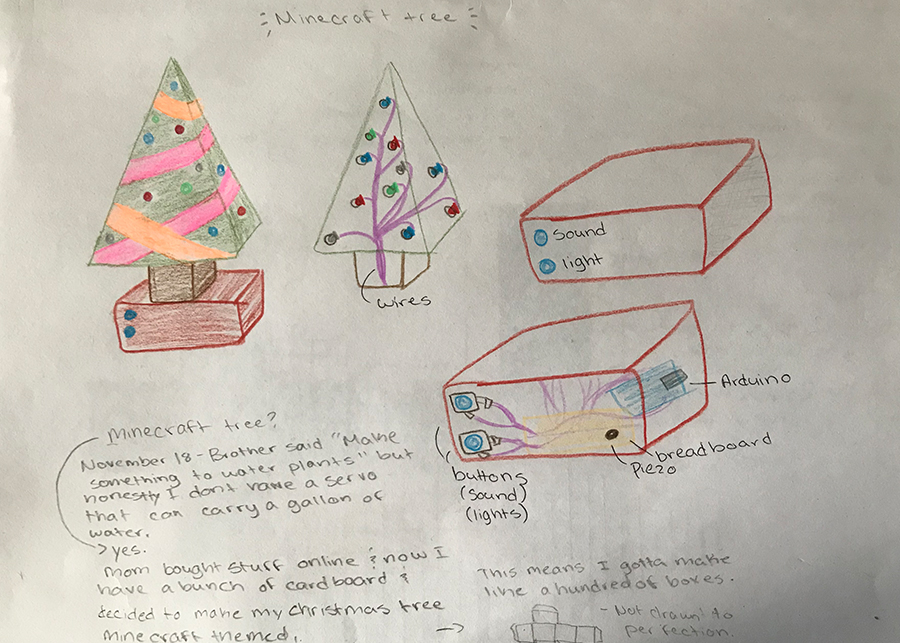 Minecraft tree
wires
sound
light
Arduino
breadboard
Piezo
buttons
(sound)
(lights)
Minecraft tree?
November 18 - Brother said "Make
something to water plants" but
honestly I don't have a servo
that can carry a gallon of
water.
yes.
Mom bought stuff online & now I
have a bunch of cardboard &
decided to make my Christmas tree
minecraft themed.
This means I gotta make
like a hundred of boxes.
- Not drawn to
perfection.